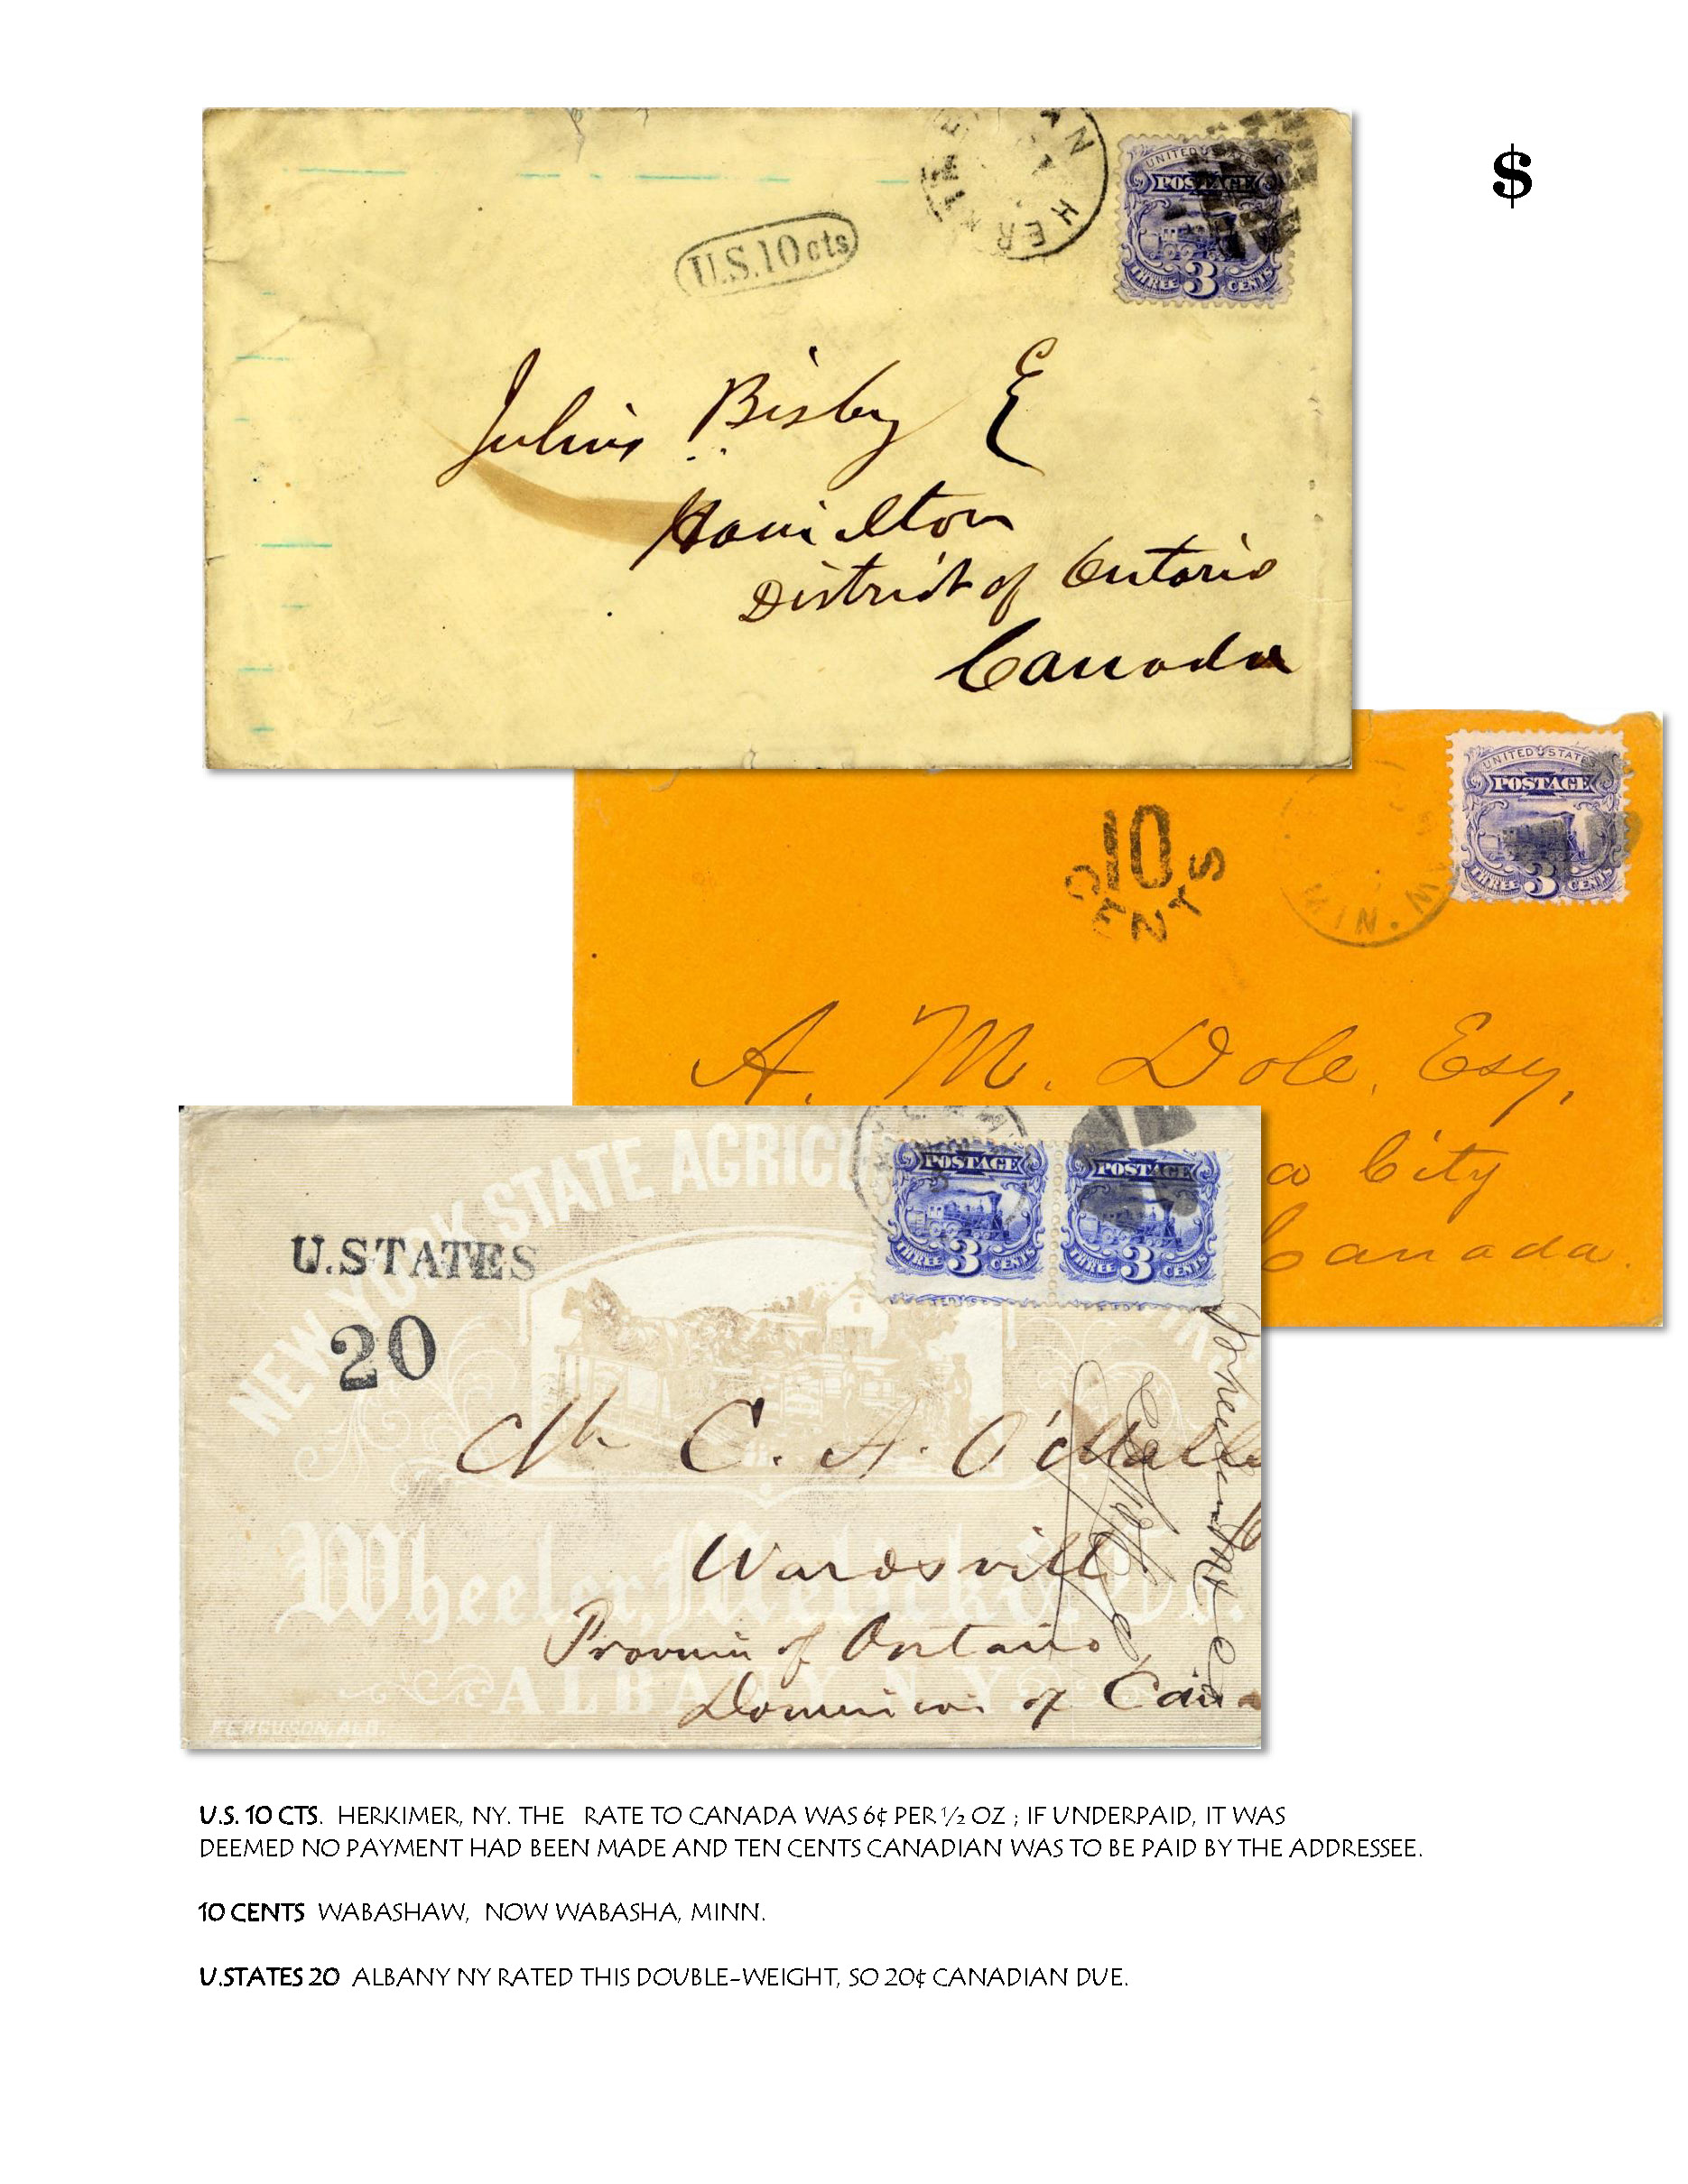 $
HERKIMER
UNITED STATES
POSTAGE
THREE 3 CENTS
U.S.10 cts
Julius Bisby E
Hamilton
District of Ontario
Canada
UNITED STATES
POSTAGE
THREE 3 CENTS
10
CENTS
MIN.
A. M. Dole, Esq,
o City
Canada.
NEW YORK STATE AGRICU
POSTAGE
THREE 3 CENTS
POSTAGE
THREE 3 CENTS
U.STATES
20
Mr C. A. O'Malle
Wheeler, Melick & Co.
Wardsvill
Provinc of Ontario
ALBANY N.Y.
Dominion of Cana
FERGUSON, ALB.
U.S. 10 CTS. HERKIMER, NY. THE RATE TO CANADA WAS 6¢ PER ½ OZ ; IF UNDERPAID, IT WAS
DEEMED NO PAYMENT HAD BEEN MADE AND TEN CENTS CANADIAN WAS TO BE PAID BY THE ADDRESSEE.
10 CENTS WABASHAW, NOW WABASHA, MINN.
U.STATES 20 ALBANY NY RATED THIS DOUBLE-WEIGHT, SO 20¢ CANADIAN DUE.